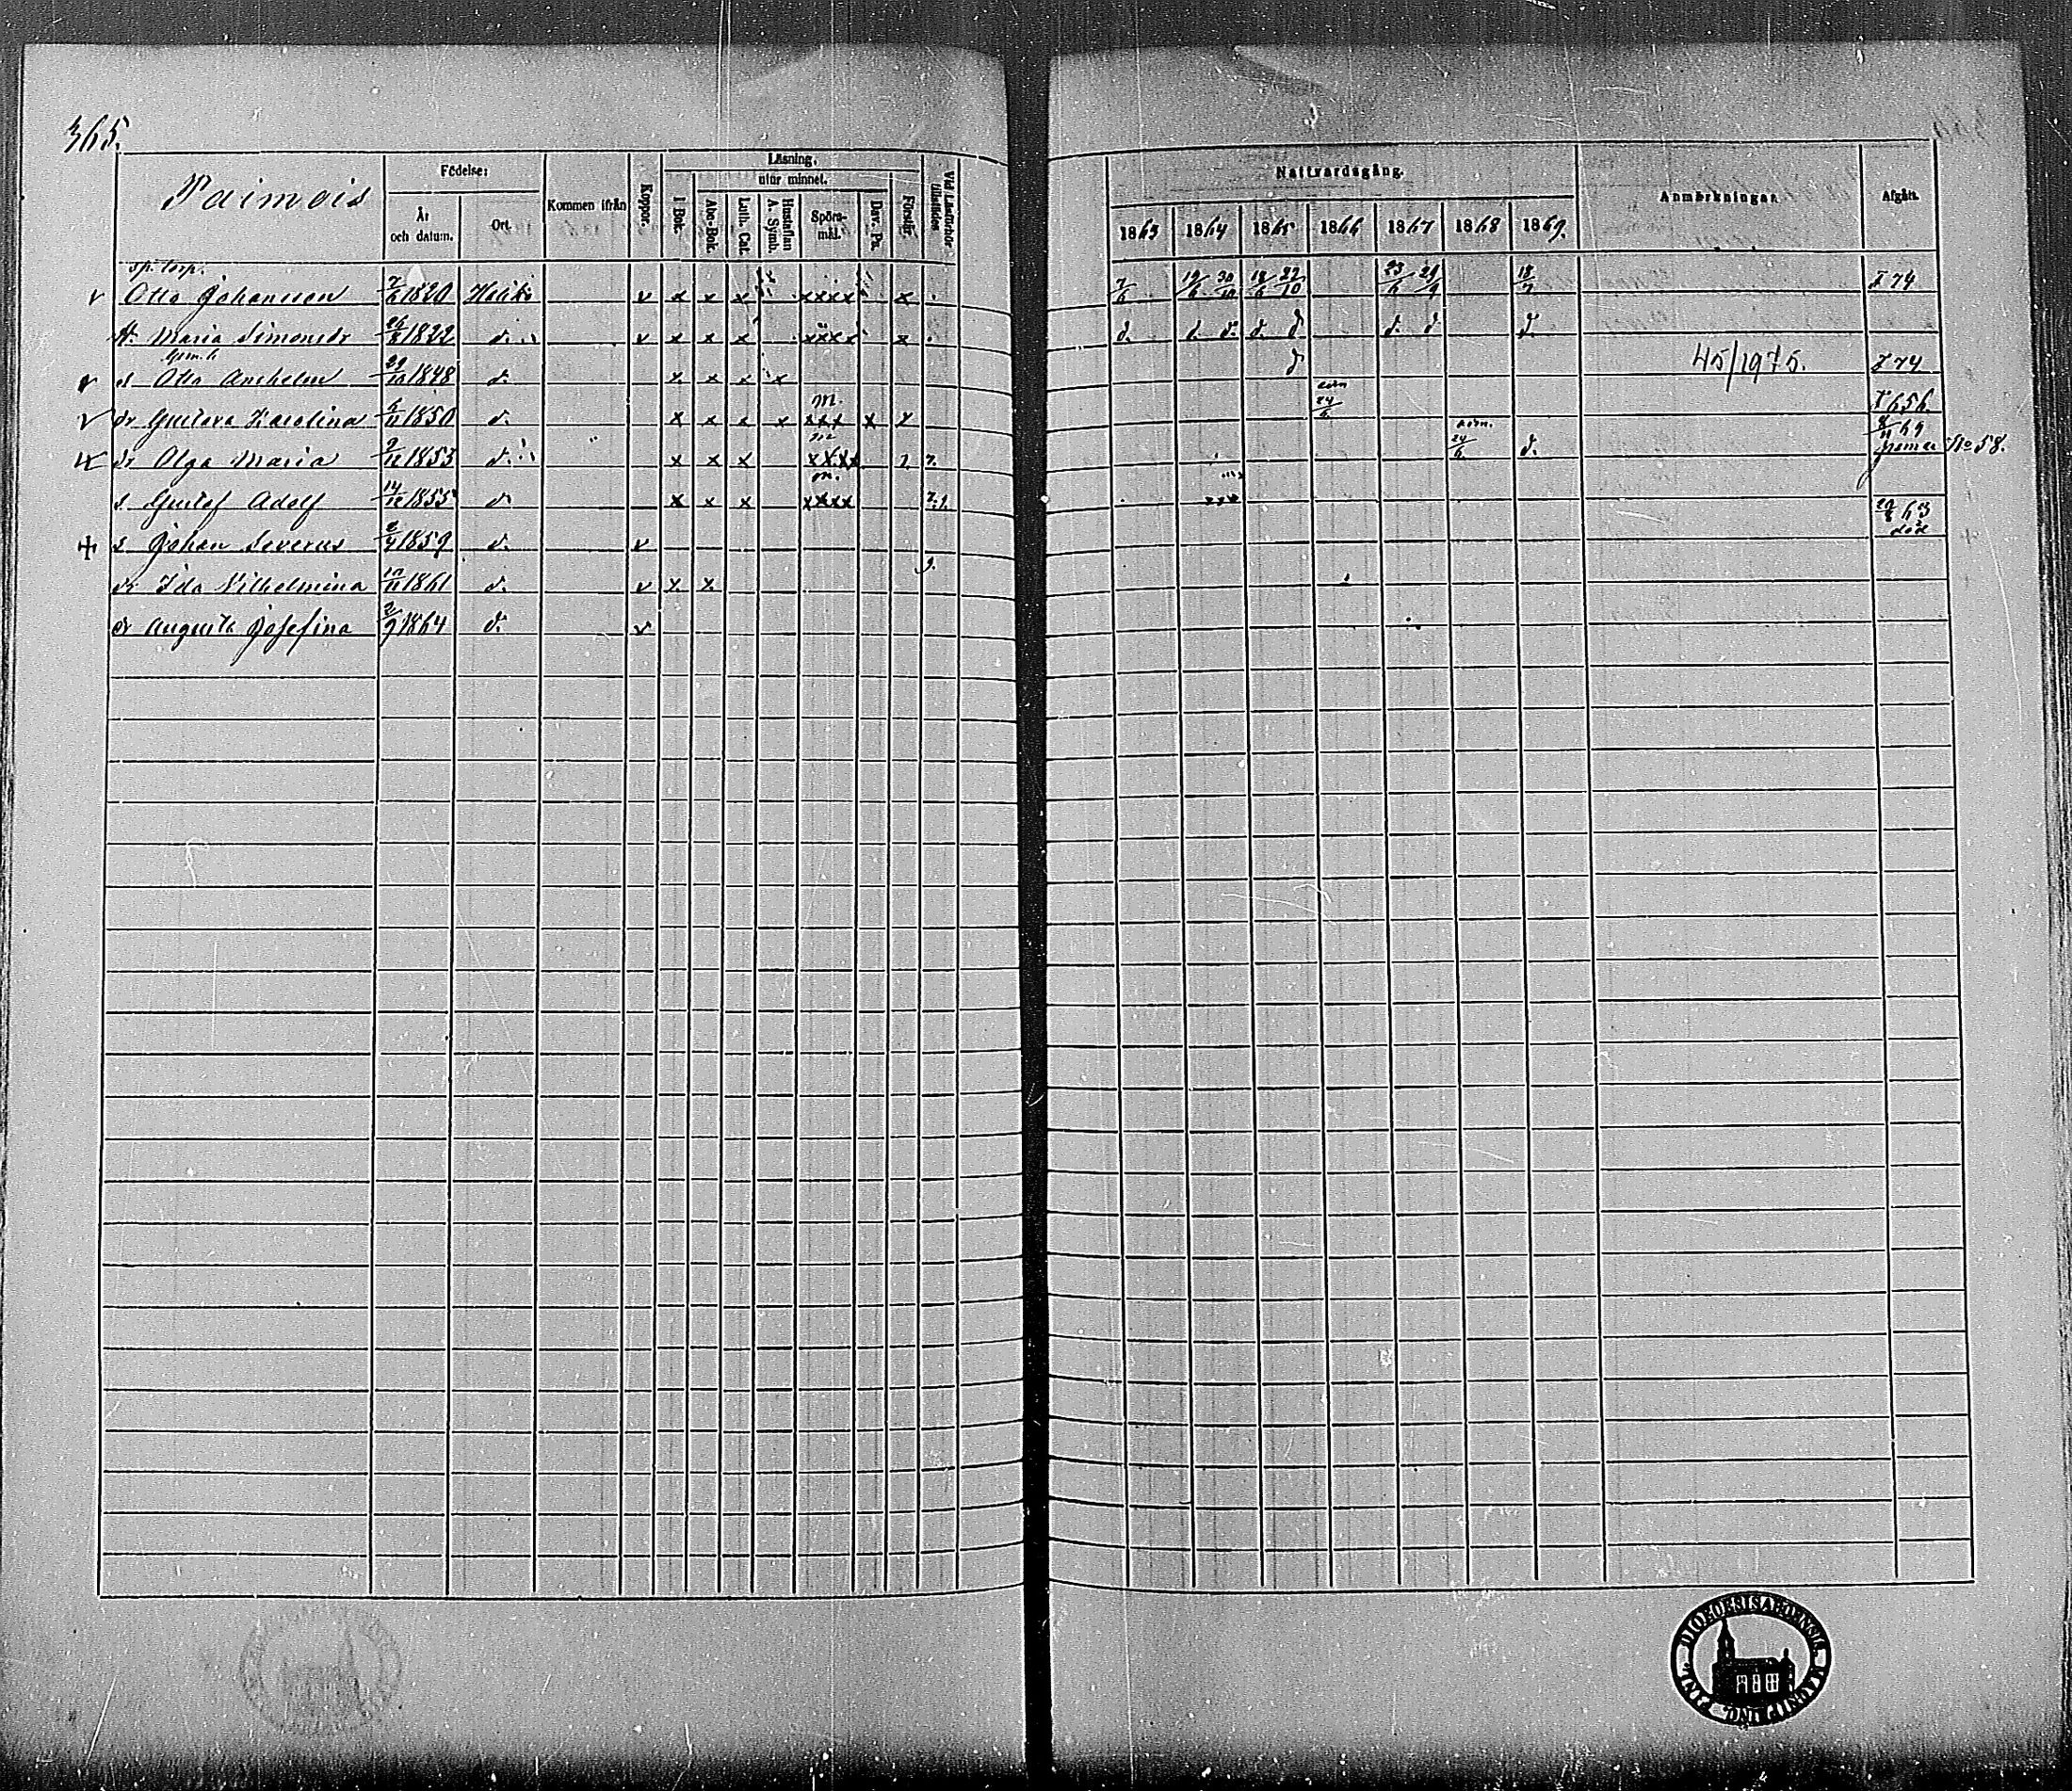 365.
Paimais
Födelse:
År och datum.
Ort.
Kommen ifrån
Koppor.
Läsning,
utur minnet.
I Bok.
Abc-Bok.
Luth. Cat.
Hustaflan A. Symb.
Spörs-mål.
Dav. Ps.
Förstår.
Nattvardsgång.
1863 1864 1865 1866 1867 1868 1869.
Anmärkningar.
Afgått.
sp. torp.
v Otto Johansson 7/6 1820 Haliko v x x x xxxx x 7/6 19/6 30/10 18/6 22/10 23/6 29/9 18/7 I 74
h. Maria Simonsdr 26/8 1822 d. v x x x xxxx x d. d. d. d. d d. d d.
v s Otto Anshelm 29/10 1848 d. x x x x d 45/1975. I 74
v dr Gustava Karolina 6/11 1850 d. x x x x m. xxx x x 24/6 I 656.
dr Olga Maria 9/12 1853 d. x x x m xxxx 24/6 d. 8/11 69 No 58.
s Gustaf Adolf 14/12 1855 d. x x x m. xxxx xxx
s Johan Severus 2/4 1859 d. v 29/8 63 död
dr Ida Vilhelmina 17/11 1861 d. v x x
dr Augusta Josefina 2/9 1864 d. v
DIOECESIS ABOENSIS